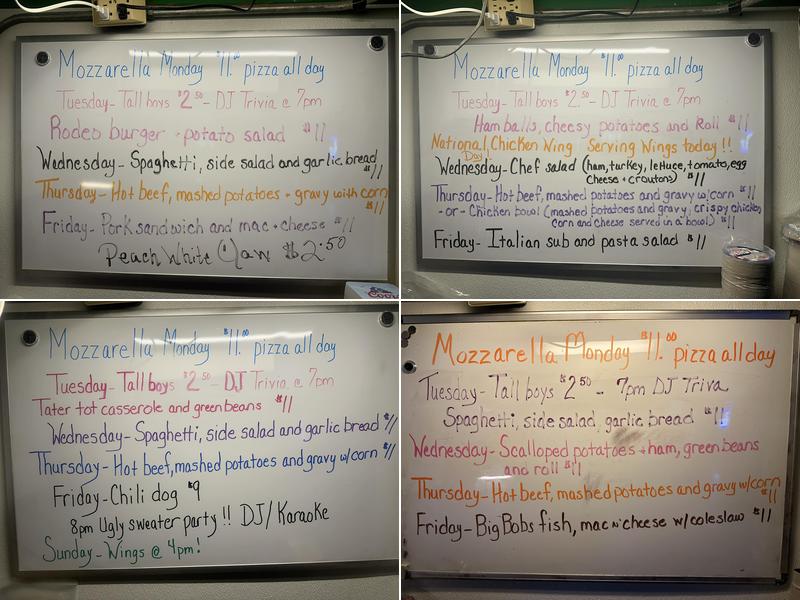 Mozzarella Monday $11.00 pizza all day
Tuesday- Tall boys $2.50- DJ Trivia @ 7pm
Rodeo burger + potato salad $11
Wednesday- Spaghetti, side salad and garlic bread $11
Thursday- Hot beef, mashed potatoes + gravy with corn $11
Friday- Pork sandwich and mac + cheese $11
Peach White Claw $2.50
Mozzarella Monday $11.00 pizza all day
Tuesday- Tall boys $2.50- DJ Trivia @ 7pm
Ham balls, cheesy potatoes and Roll $11
National Chicken Wing Day Serving Wings today!!
Wednesday- Chef salad (ham, turkey, lettuce, tomato, egg
Cheese + croutons) $11
Thursday- Hot beef, mashed potatoes and gravy w/corn $11
-or- Chicken bowl (mashed potatoes and gravy, crispy chicken,
corn and cheese served in a bowl) $11
Friday- Italian sub and pasta salad $11
Mozzarella Monday $11.00 pizza all day
Tuesday- Tall boys $2.50- DJ Trivia @ 7pm
Tater tot casserole and green beans $11
Wednesday- Spaghetti, side salad and garlic bread $11
Thursday- Hot beef, mashed potatoes and gravy w/corn $11
Friday- Chili dog $9
8pm Ugly sweater party!! DJ/Karaoke
Sunday- Wings @ 4pm!
Mozzarella Monday $11.00 pizza all day
Tuesday- Tall boys $2.50 - 7pm DJ Triva
Spaghetti, side salad, garlic bread $11
Wednesday- Scalloped potatoes + ham, green beans
and roll $11
Thursday- Hot beef, mashed potatoes and gravy w/corn $11
Friday- Big Bobs fish, mac n' cheese w/coleslaw $11